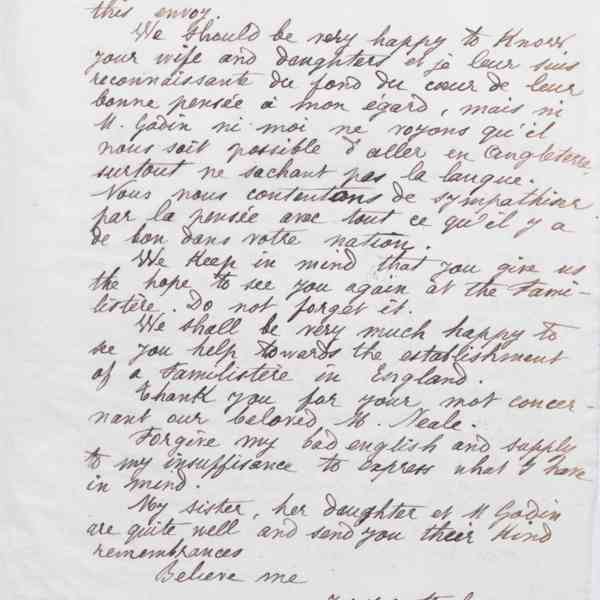 this envoy.
We should be very happy to know
your wife and daughters et je leur suis
reconnaissante du fond du cœur de leur
bonne pensée à mon égard, mais ni
M. Godin ni moi ne voyons qu'il
nous soit possible d'aller en Angleterre,
surtout ne sachant pas la langue.
Nous nous contentons de sympathiser
par la pensée avec tout ce qu'il y a
de bon dans votre nation.
We keep in mind that you give us
the hope to see you again at the Fami-
listère. Do not forget it.
We shall be very much happy to
see you help towards the establishment
of a Familistère in England.
Thank you for your mot concer-
nant our beloved M. Neale.
Forgive my bad english and supply
to my insuffisance to express what I have
in mind.
My sister, her daughter et M Godin
are quite well and send you their kind
remembrances
Believe me